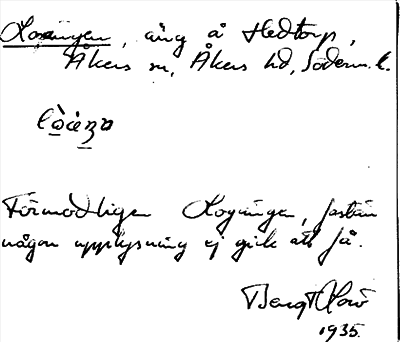 Losängen, äng å Hedtorp,
Åkers sn, Åkers hd, Söderm. l.
Förmodligen Logängen, fastän
någon upplysning ej gick att få.
Bengt
1935.